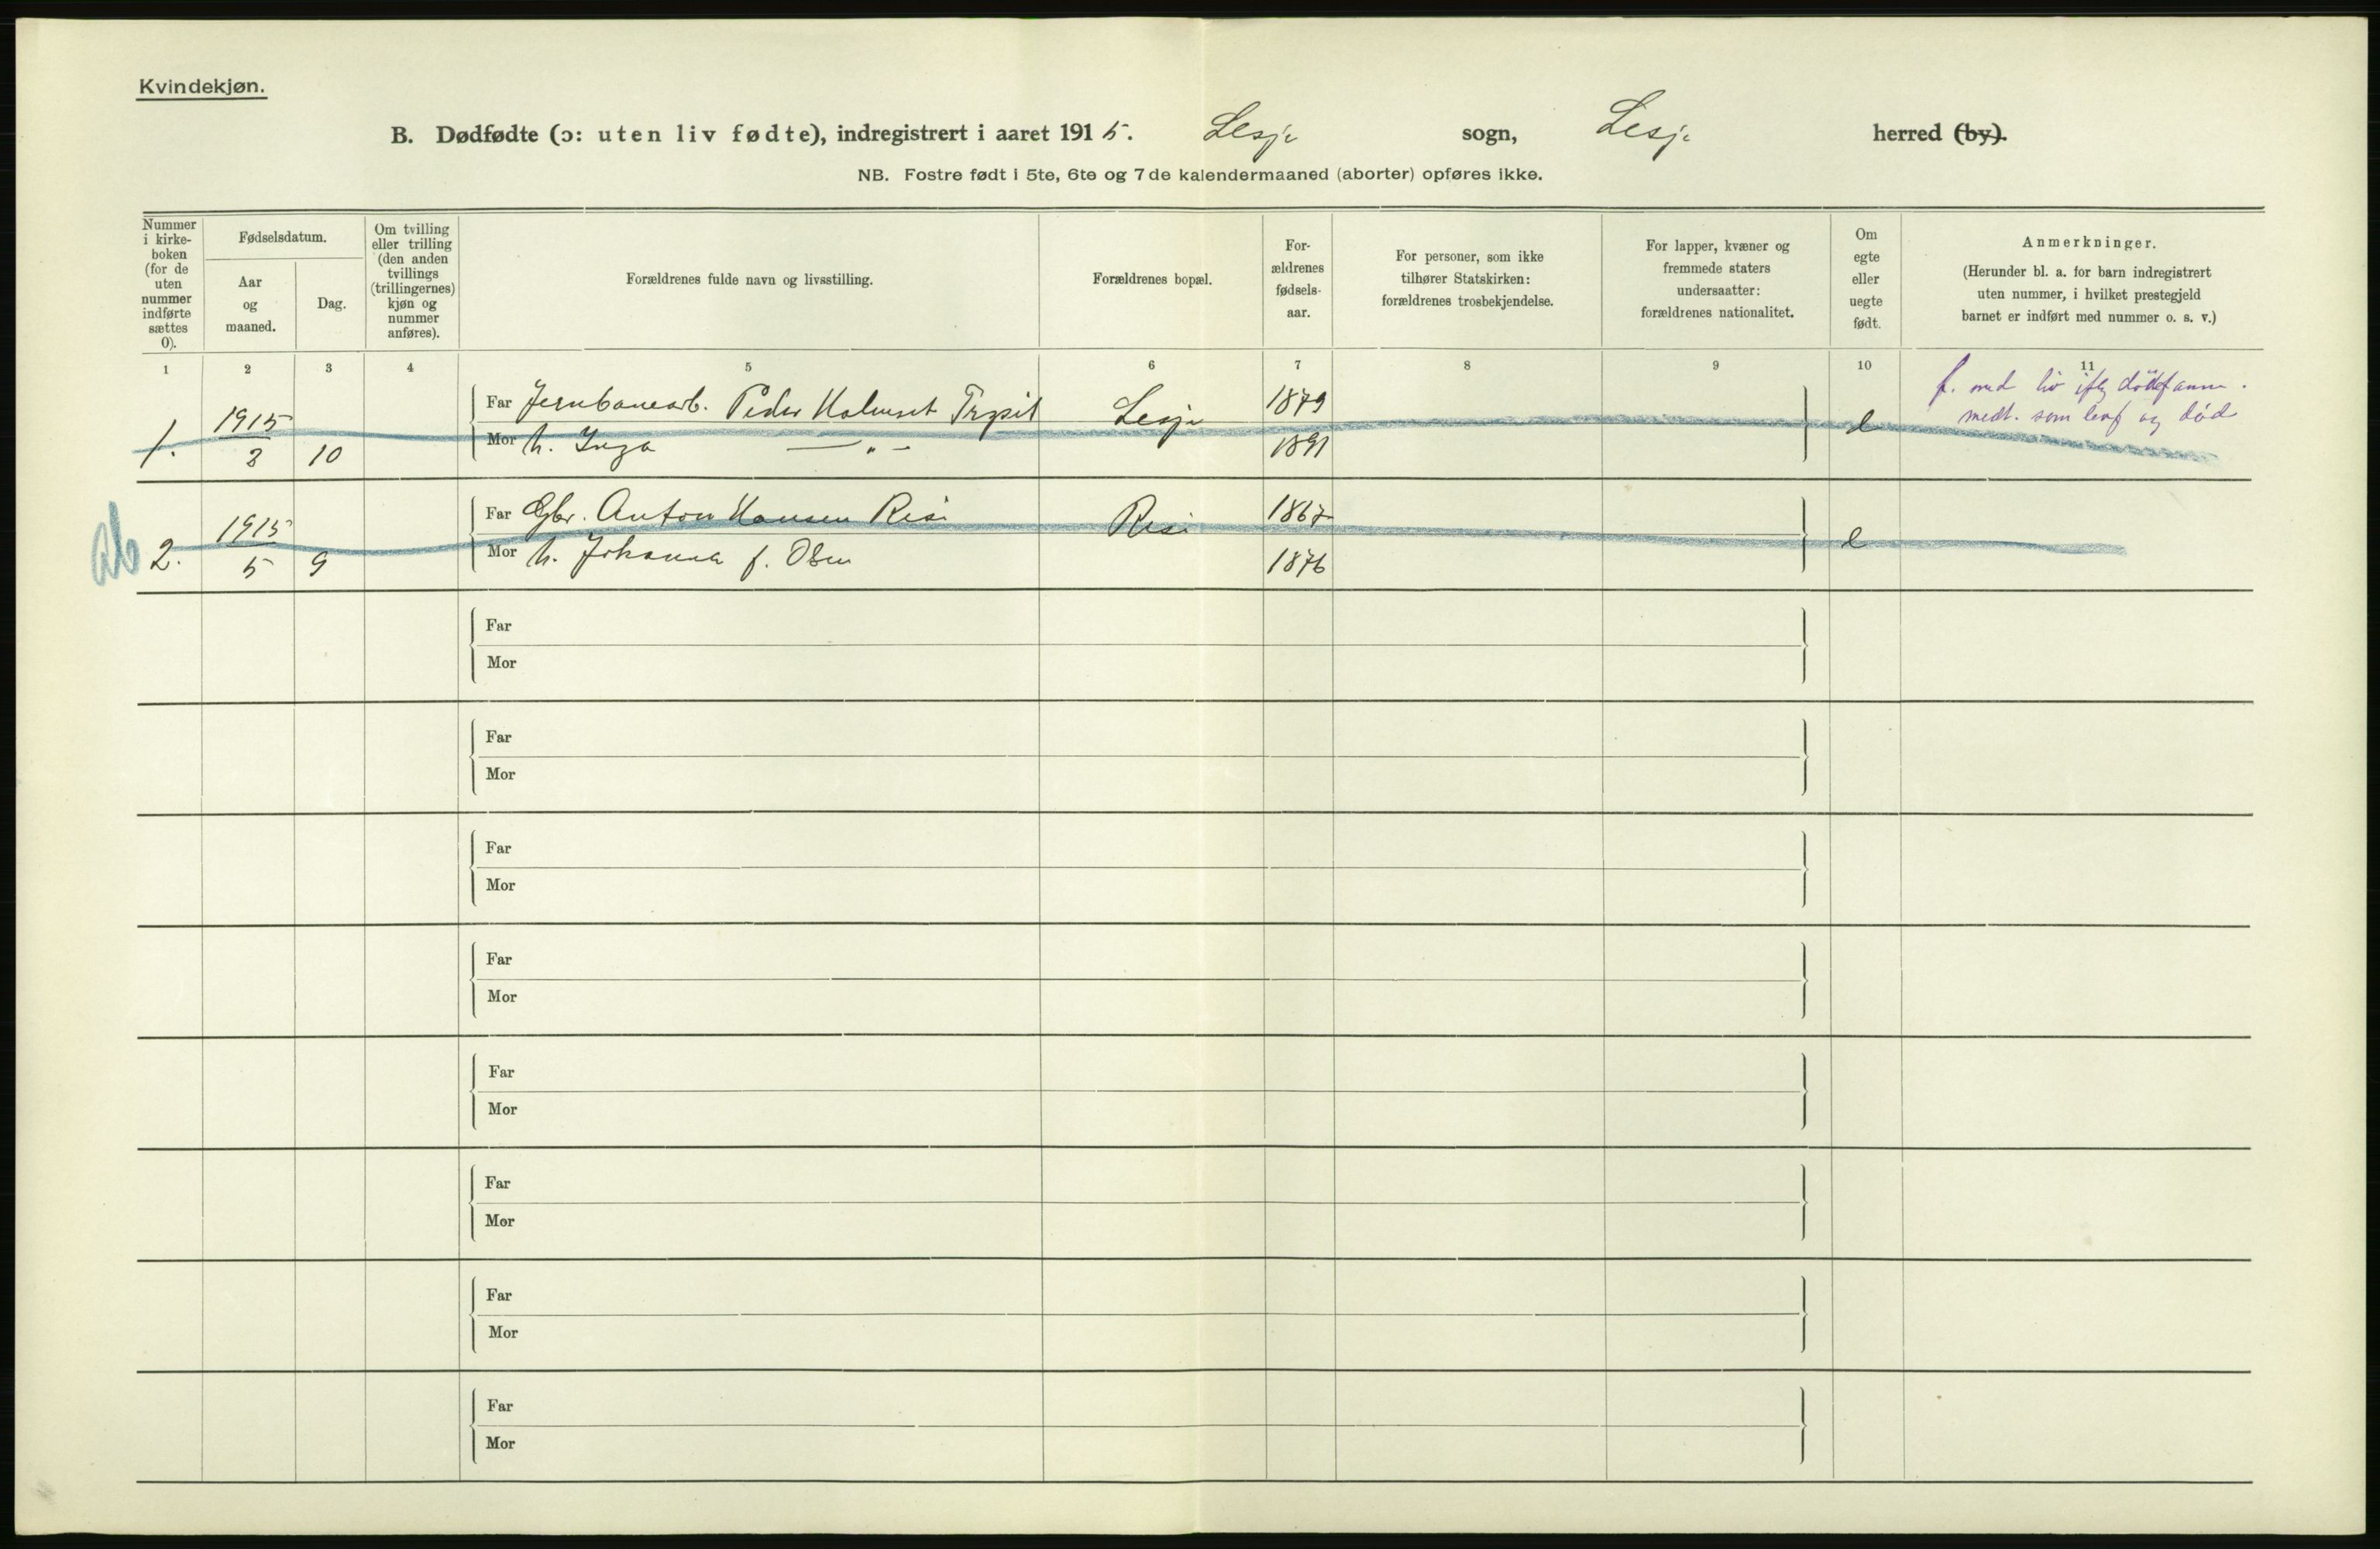 Kvindekjøn.
B. Dødfødte (ɔ: uten liv fødte), indregistrert i aaret 1915. Lesje sogn, Lesje herred (by).
NB. Fostre født i 5te, 6te og 7de kalendermaaned (aborter) opføres ikke.
Nummer
i kirke-
boken
(for de
uten
nummer
indførte
sættes
0).
Fødselsdatum.
Aar
og
maaned.
Dag.
Om tvilling
eller trilling
(den anden
tvillings
(trillingernes)
kjøn og
nummer
anføres).
Forældrenes fulde navn og livsstilling.
Forældrenes bopæl.
For-
ældrenes
fødsels-
aar.
For personer, som ikke
tilhører Statskirken:
forældrenes trosbekjendelse.
For lapper, kvæner og
fremmede staters
undersaatter:
forældrenes nationalitet.
Om
egte
eller
uegte
født.
Anmerkninger.
(Herunder bl. a. for barn indregistrert
uten nummer, i hvilket prestegjeld
barnet er indført med nummer o. s. v.)
1 2 3 4 5 6 7 8 9 10 11
1. 1915
3 10
Far Jernbanearb. Peder Holmset Trysil Lesje 1879
Mor h. Inga — „ — 1891
e
f. med liv iflg dødsfanm.
medt. som levf og død
ab 2. 1915
5 9
Far Gbr. Anton Hansen Risi Risi 1867
Mor h. Johanna f. Olsen 1876
e
Far
Mor
Far
Mor
Far
Mor
Far
Mor
Far
Mor
Far
Mor
Far
Mor
Far
Mor